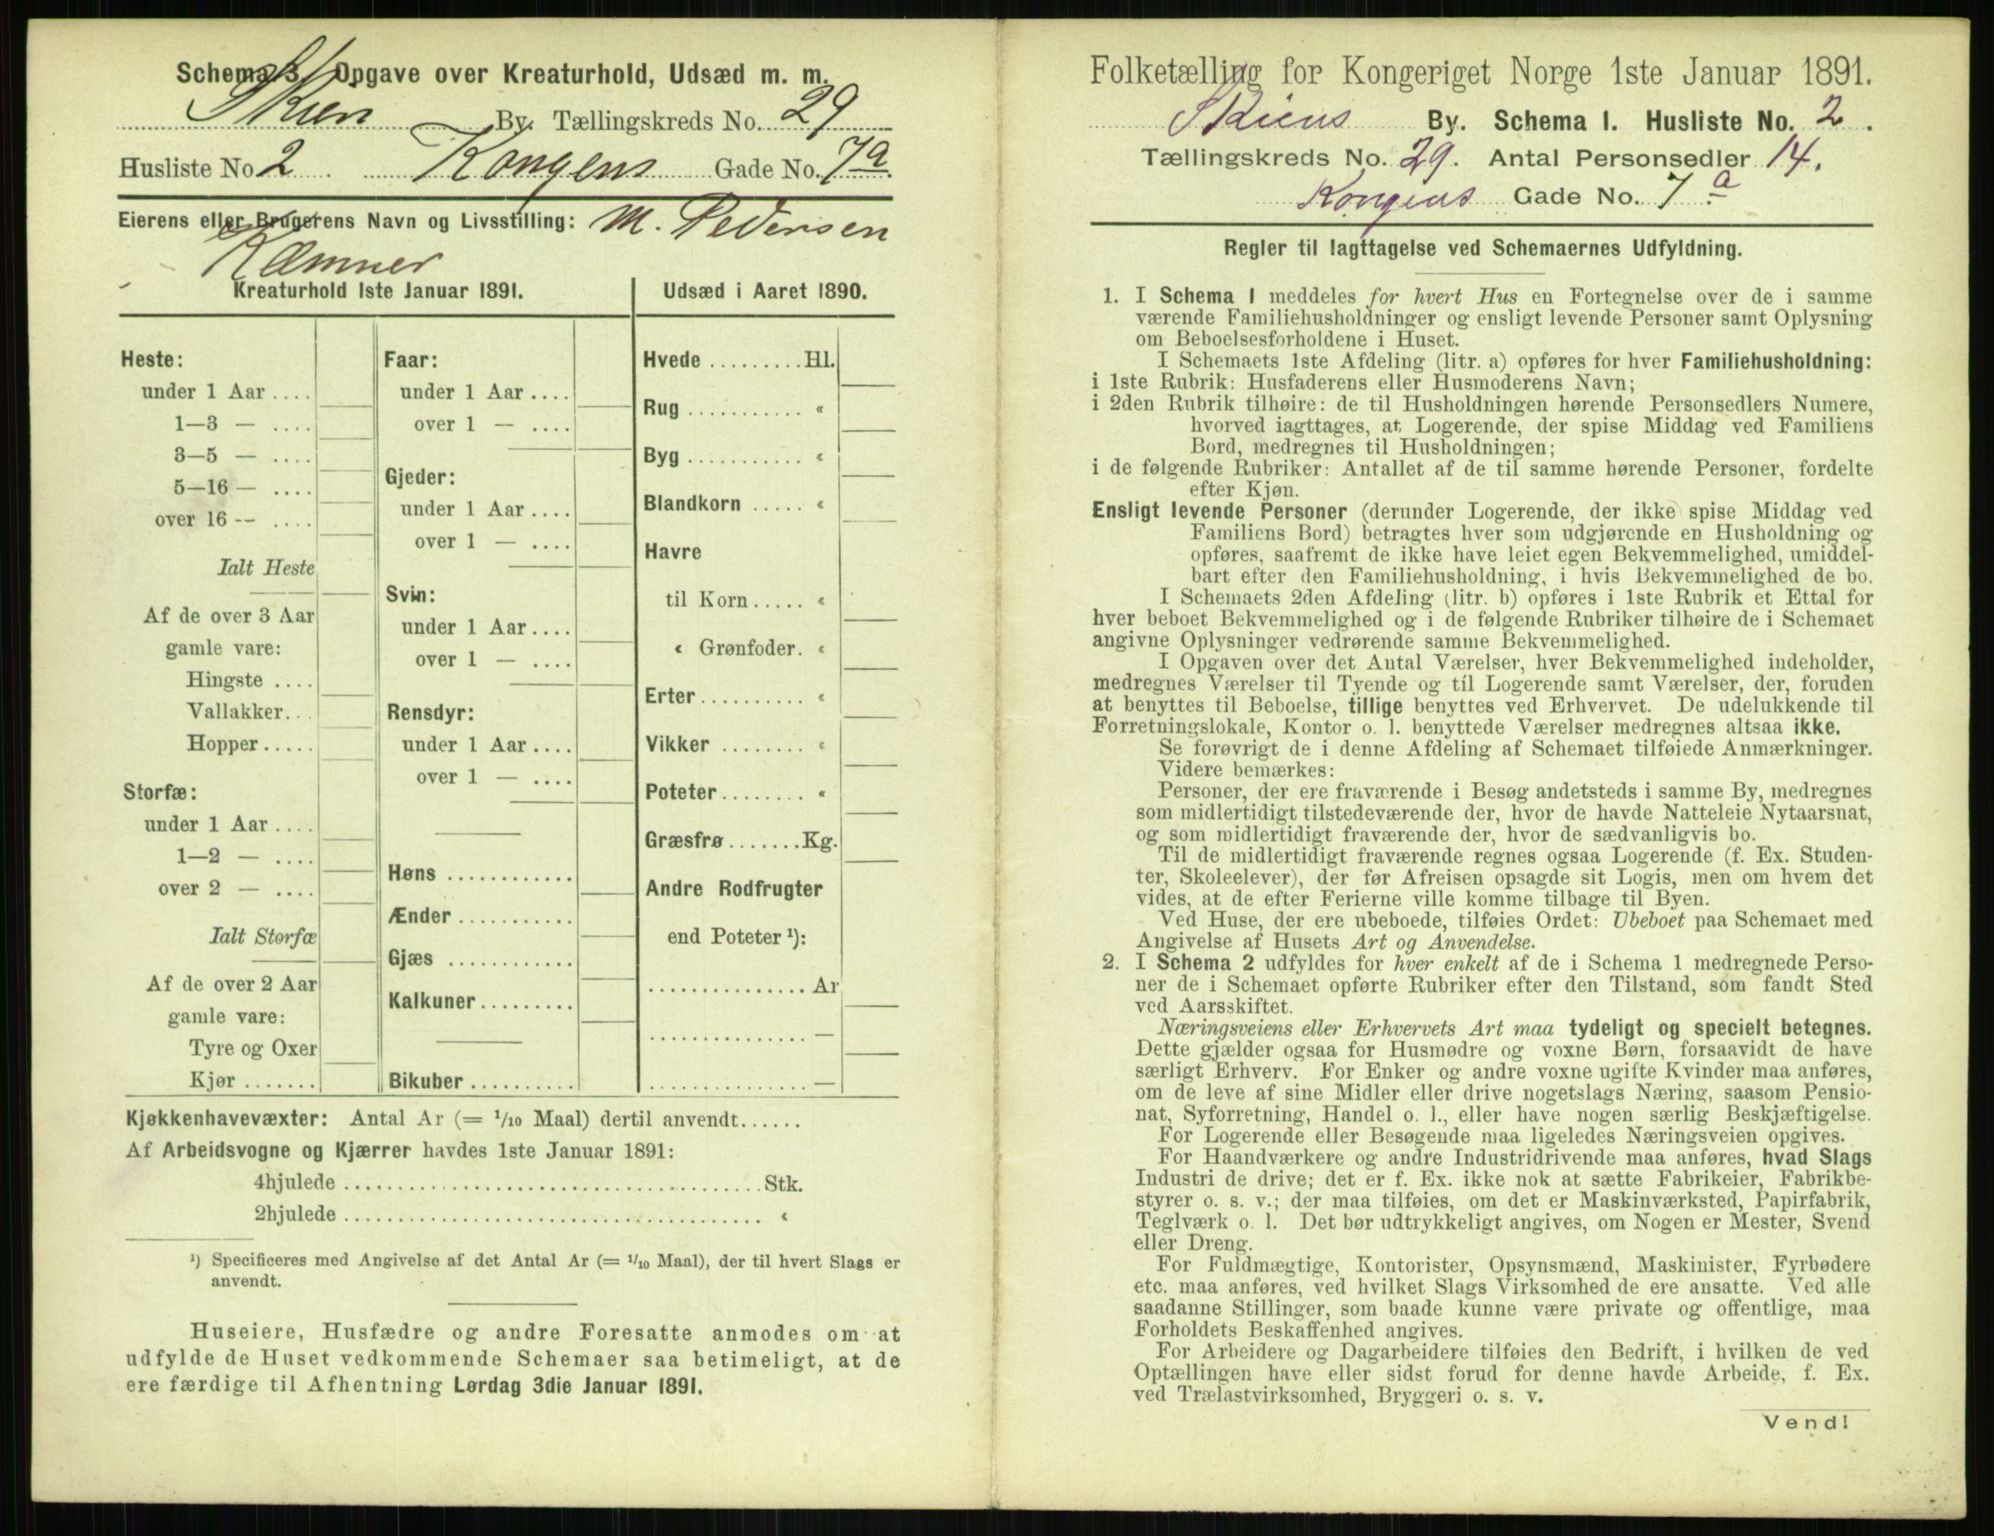 Schema 3. Opgave over Kreaturhold, Udsæd m. m.
Skien By. Tællingskreds No. 29
Husliste No. 2 Kongens Gade No. 7a.
Eierens eller Brugerens Navn og Livsstilling: M. Pedersen
Kæmner
Kreaturhold 1ste Januar 1891.
Heste:
under 1 Aar ....
1—3 — ....
3—5 — ....
5—16 — ....
over 16 -- ....
Ialt Heste
Af de over 3 Aar
gamle vare:
Hingste ....
Vallakker...
Hopper .....
Storfæ:
under 1 Aar ....
1—2 — ....
over 2 — ....
Ialt Storfæ
Af de over 2 Aar
gamle vare:
Tyre og Oxer
Kjør .......
Faar:
under 1 Aar ....
over 1 — ....
Gjeder:
under 1 Aar ....
over 1 — ....
Svin:
under 1 Aar ....
over 1 — ....
Rensdyr:
under 1 Aar ....
over 1 — ....
Høns ............
Ænder ...........
Gjæs ............
Kalkuner.........
Bikuber ..........
Udsæd i Aaret 1890.
Hvede .........Hl.
Rug ........... «
Byg ........... «
Blandkorn ..... «
Havre
til Korn ..... «
« Grønfoder. «
Erter .......... «
Vikker ........ «
Poteter........ «
Græsfrø .......Kg.
Andre Rodfrugter
end Poteter ¹):
............... Ar
............... —
............... —
Kjøkkenhavevæxter: Antal Ar (= 1/10 Maal) dertil anvendt......
Af Arbeidsvogne og Kjærrer havdes 1ste Januar 1891:
4hjulede ....................................... Stk.
2hjulede ....................................... «
¹) Specificeres med Angivelse af det Antal Ar (= 1/10 Maal), der til hvert Slags er
anvendt.
Huseiere, Husfædre og andre Foresatte anmodes om at
udfylde de Huset vedkommende Schemaer saa betimeligt, at de
ere færdige til Afhentning Lørdag 3die Januar 1891.
Folketælling for Kongeriget Norge 1ste Januar 1891.
Skiens By. Schema 1. Husliste No. 2.
Tællingskreds No. 29. Antal Personsedler 14.
Kongens Gade No. 7 a
Regler til Iagttagelse ved Schemaernes Udfyldning.
1. I Schema 1 meddeles for hvert Hus en Fortegnelse over de i samme
værende Familiehusholdninger og ensligt levende Personer samt Oplysning
om Beboelsesforholdene i Huset.
I Schemaets 1ste Afdeling (litr. a) opføres for hver Familiehusholdning:
i 1ste Rubrik: Husfaderens eller Husmoderens Navn;
i 2den Rubrik tilhøire: de til Husholdningen hørende Personsedlers Numere,
hvorved iagttages, at Logerende, der spise Middag ved Familiens
Bord, medregnes til Husholdningen;
i de følgende Rubriker: Antallet af de til samme hørende Personer, fordelte
efter Kjøn.
Ensligt levende Personer (derunder Logerende, der ikke spise Middag ved
Familiens Bord) betragtes hver som udgjørende en Husholdning og
opføres, saafremt de ikke have leiet egen Bekvemmelighed, umiddel-
bart efter den Familiehusholdning, i hvis Bekvemmelighed de bo.
I Schemaets 2den Afdeling (litr. b) opføres i 1ste Rubrik et Ettal for
hver beboet Bekvemmelighed og i de følgende Rubriker tilhøire de i Schemaet
angivne Oplysninger vedrørende samme Bekvemmelighed.
I Opgaven over det Antal Værelser, hver Bekvemmelighed indeholder,
medregnes Værelser til Tyende og til Logerende samt Værelser, der, foruden
at benyttes til Beboelse, tillige benyttes ved Erhvervet. De udelukkende til
Forretningslokale, Kontor o. l. benyttede Værelser medregnes altsaa ikke.
Se forøvrigt de i denne Afdeling af Schemaet tilføiede Anmærkninger.
Videre bemærkes:
Personer, der ere fraværende i Besøg andetsteds i samme By, medregnes
som midlertidigt tilstedeværende der, hvor de havde Natteleie Nytaarsnat,
og som midlertidigt fraværende der, hvor de sædvanligvis bo.
Til de midlertidigt fraværende regnes ogsaa Logerende (f. Ex. Studen-
ter, Skoleelever), der før Afreisen opsagde sit Logis, men om hvem det
vides, at de efter Ferierne ville komme tilbage til Byen.
Ved Huse, der ere ubeboede, tilføies Ordet: Ubeboet paa Schemaet med
Angivelse af Husets Art og Anvendelse.
2. I Schema 2 udfyldes for hver enkelt af de i Schema 1 medregnede Perso-
ner de i Schemaet opførte Rubriker efter den Tilstand, som fandt Sted
ved Aarsskiftet.
Næringsveiens eller Erhvervets Art maa tydeligt og specielt betegnes.
Dette gjælder ogsaa for Husmødre og voxne Børn, forsaavidt de have
særligt Erhverv. For Enker og andre voxne ugifte Kvinder maa anføres,
om de leve af sine Midler eller drive nogetslags Næring, saasom Pensio-
nat, Syforretning, Handel o. l., eller have nogen særlig Beskjæftigelse.
For Logerende eller Besøgende maa ligeledes Næringsveien opgives.
For Haandværkere og andre Industridrivende maa anføres, hvad Slags
Industri de drive; det er f. Ex. ikke nok at sætte Fabrikeier, Fabrikbe-
styrer o. s. v.; der maa tilføies, om det er Maskinværksted, Papirfabrik,
Teglværk o. l. Det bør udtrykkeligt angives, om Nogen er Mester, Svend
eller Dreng.
For Fuldmægtige, Kontorister, Opsynsmænd, Maskinister, Fyrbødere
etc. maa anføres, ved hvilket Slags Virksomhed de ere ansatte. Ved alle
saadanne Stillinger, som baade kunne være private og offentlige, maa
Forholdets Beskaffenhed angives.
For Arbeidere og Dagarbeidere tilføies den Bedrift, i hvilken de ved
Optællingen have eller sidst forud for denne havde Arbeide, f. Ex.
ved Trælastvirksomhed, Bryggeri o. s. v.
Vend!